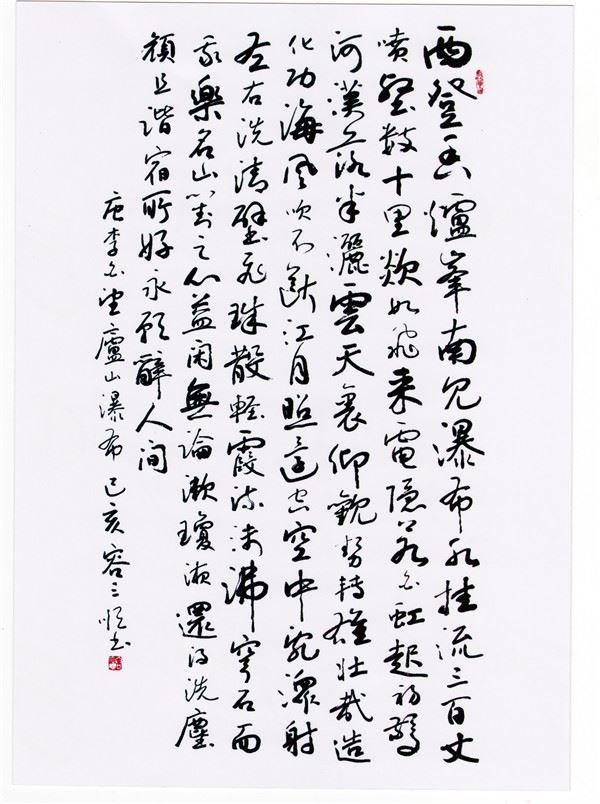 西登香爐峯南見瀑布水挂流三百丈
噴壑數十里欻如飛来電隱若白虹起初驚
河漢落半灑雲天裏仰觀勢轉雄壯哉造
化功海風吹不斷江月照還空空中亂潨射
左右洗清壁飛珠散輕霞流沫沸穹石而
我樂名山對之心益閑無論漱瓊液還得洗塵
顏且諧宿所好永願辭人间
唐李白望廬山瀑布 己亥容书